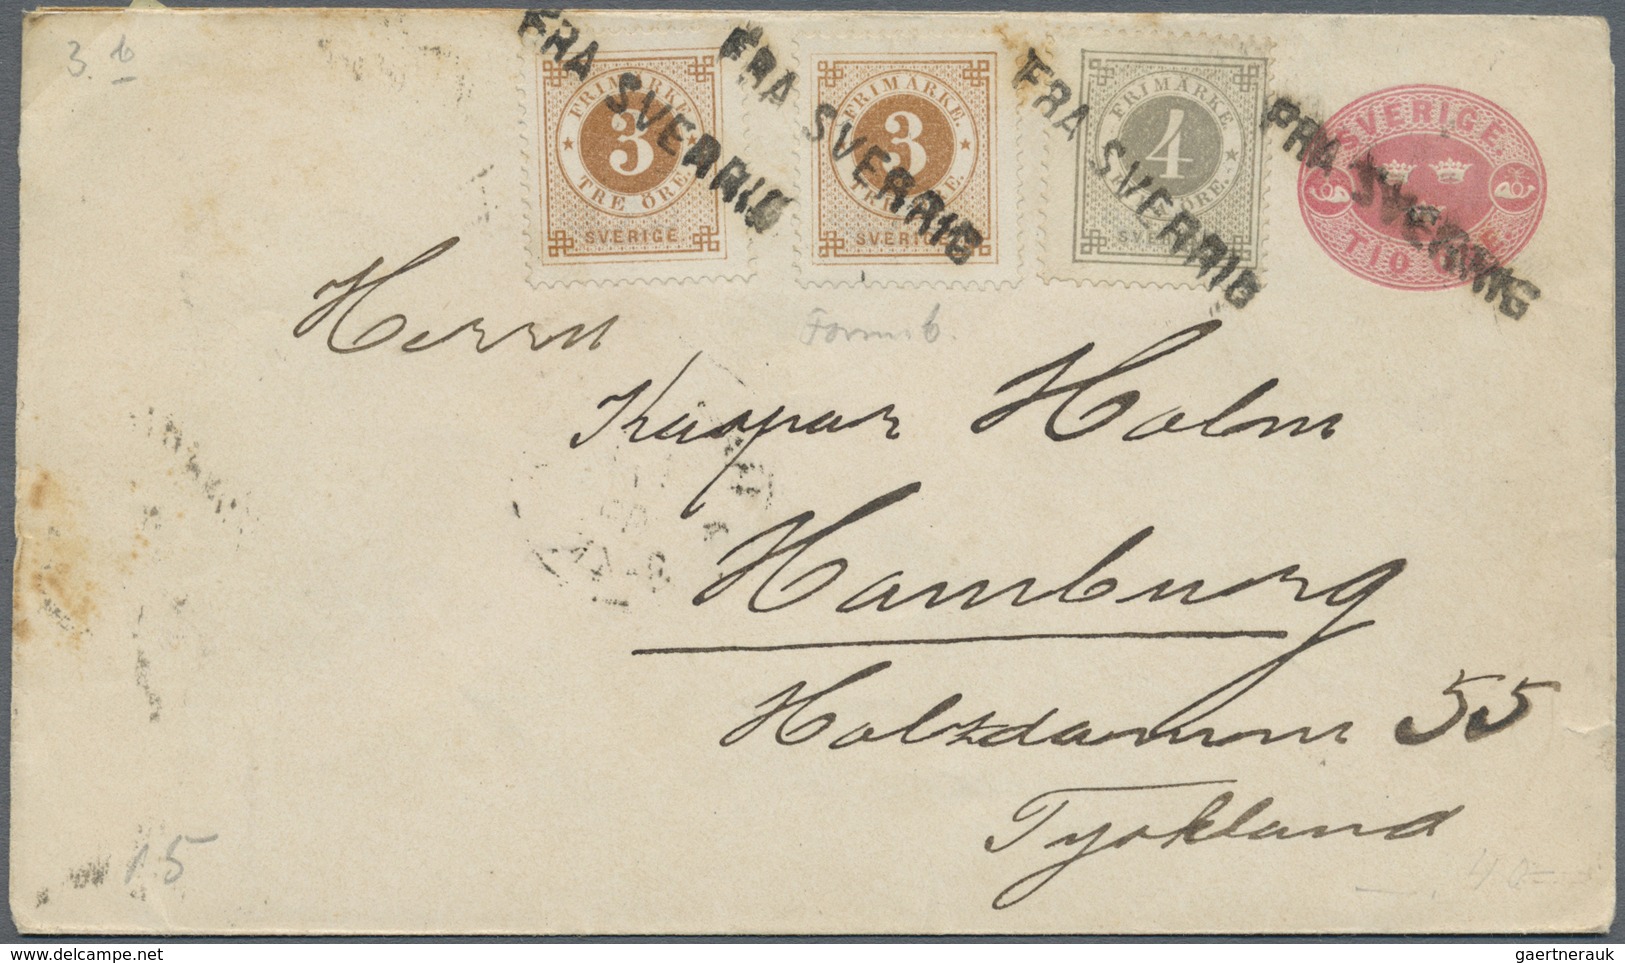 3. b
FRA SVERRIG
FRA SVERRIG
FRA SVERRIG
FRA SVERRIG
FRIMÄRKE.
3
TRE ÖRE.
SVERIGE
FRIMÄRKE.
3
TRE ÖRE.
SVERIGE
FRIMÄRKE.
4
ÖRE.
SVERIGE
SVERIGE.
TIO ÖRE
Herrn
Kaspar Holm
Hamburg
Holzdamm 55
Tyskland
15
delcampe.net
gaertnerauk